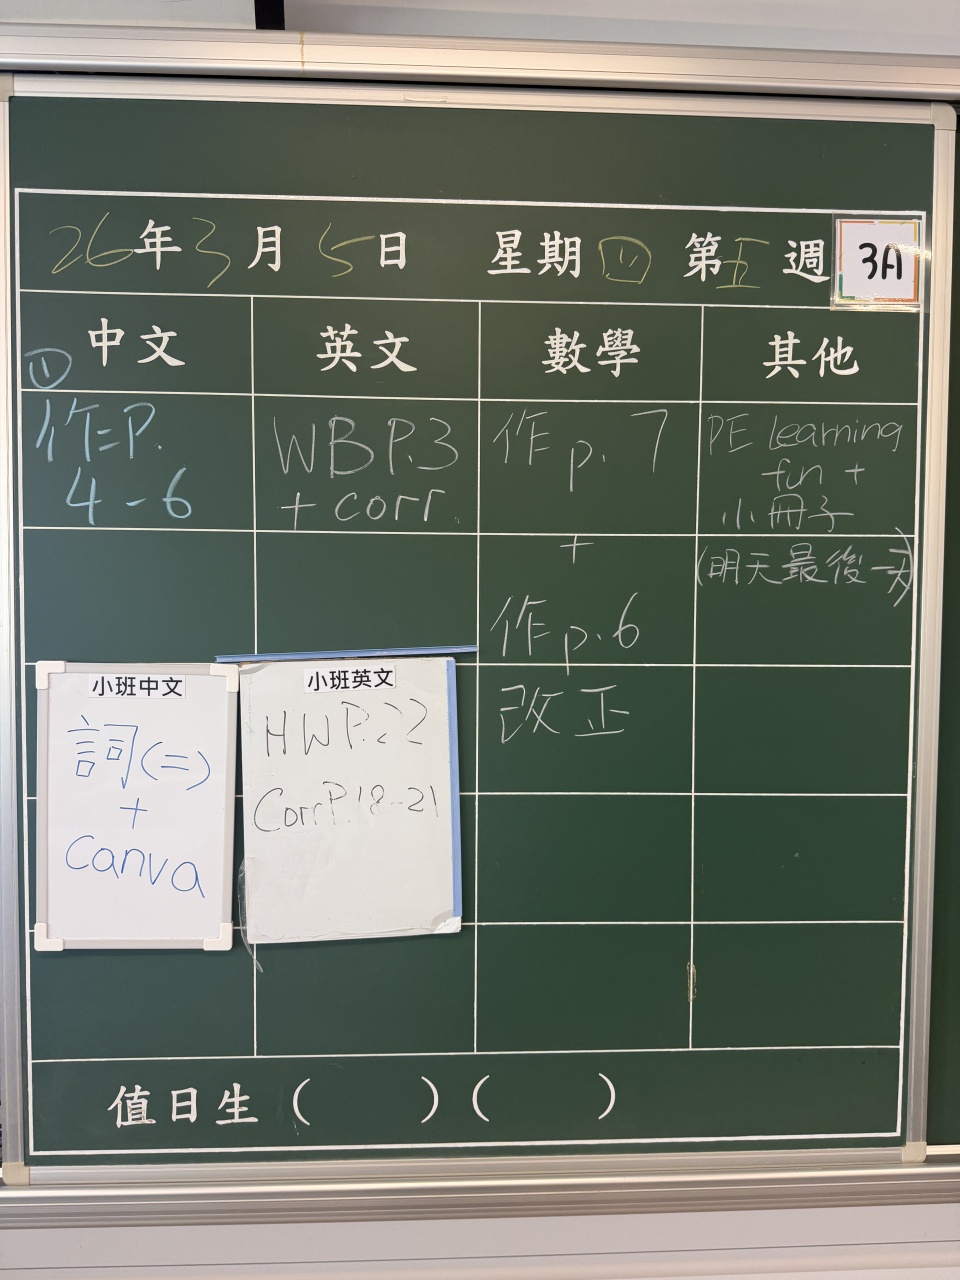 26年3月5日 星期四 第五週 3A
中文 英文 數學 其他
①
作=P.
4-6
WB P.3
+ corr.
作 p. 7
+
作 p. 6
改正
PE Learning
fun +
小冊子
(明天最後一天)
小班中文
詞(二)
+
Canva
小班英文
HW P.22
Corr P.18-21
值日生 ( ) ( )